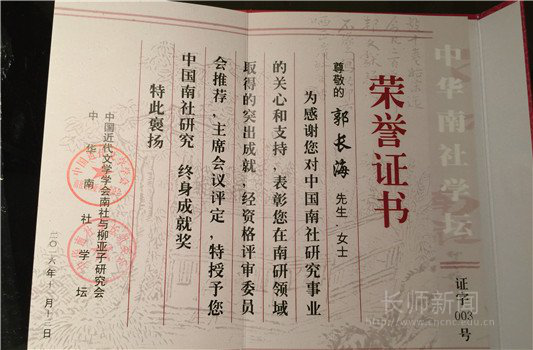 中华南社学坛
证字003号
荣誉证书
尊敬的 郭长海 先生·女士
为感谢您对中国南社研究事业
的关心和支持，表彰您在南研领域
取得的突出成就，经资格评审委员
会推荐，主席会议评定，特授予您
中国南社研究 终身成就奖
特此褒扬
中国近代文学学会南社与柳亚子研究会
中华南社学坛
二〇一六年十一月十二日
长师新闻